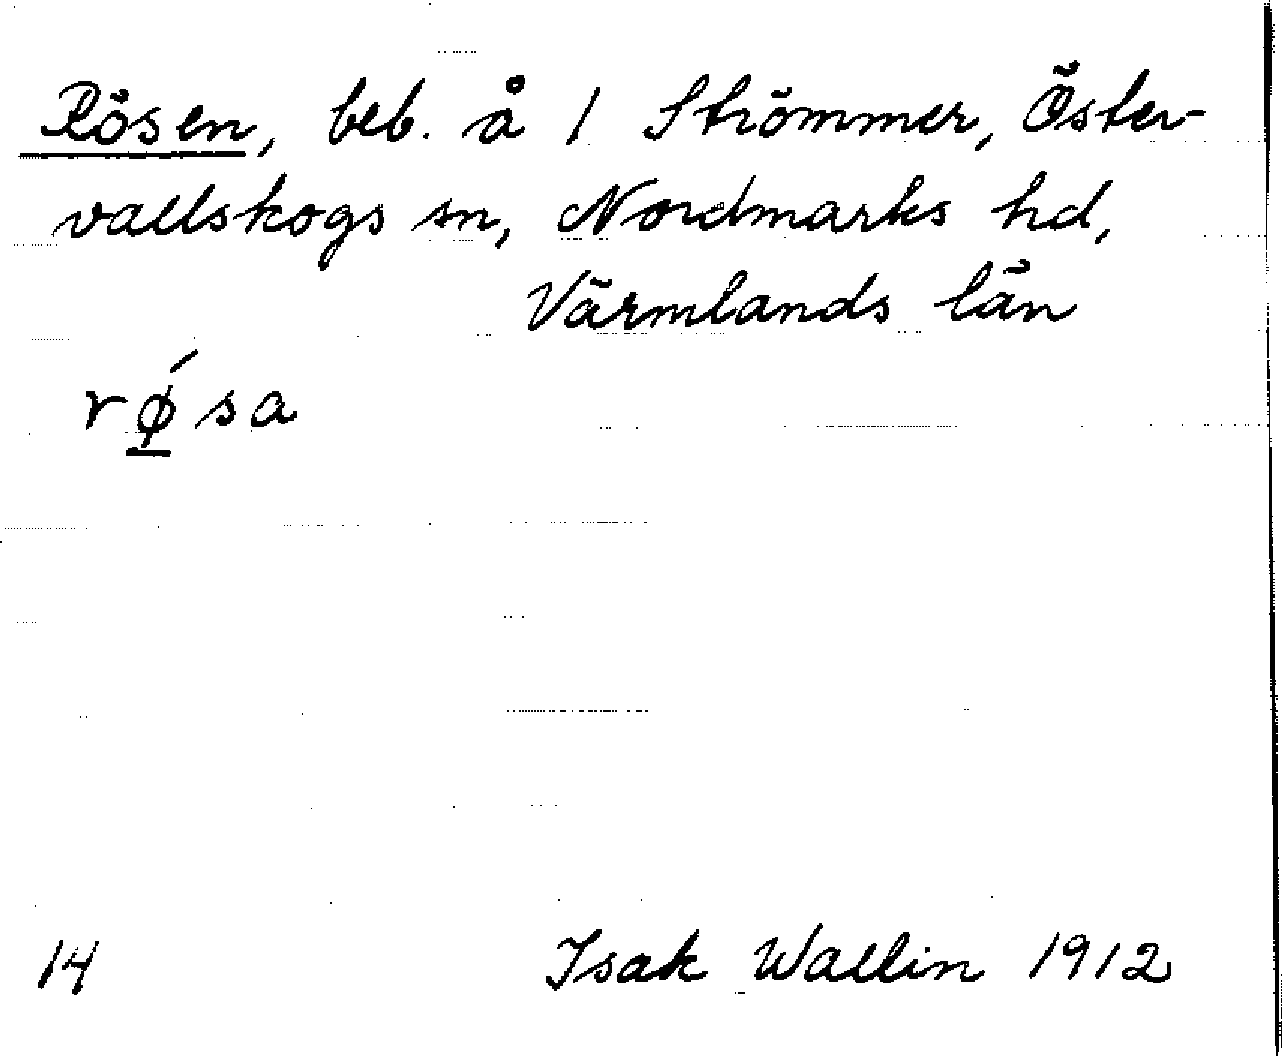 Rösen, beb. å 1 Strömmer, Öster-
vallskogs sn, Nordmarks hd,
Värmlands län
rǿ̱sa
14 Isak Wallin 1912